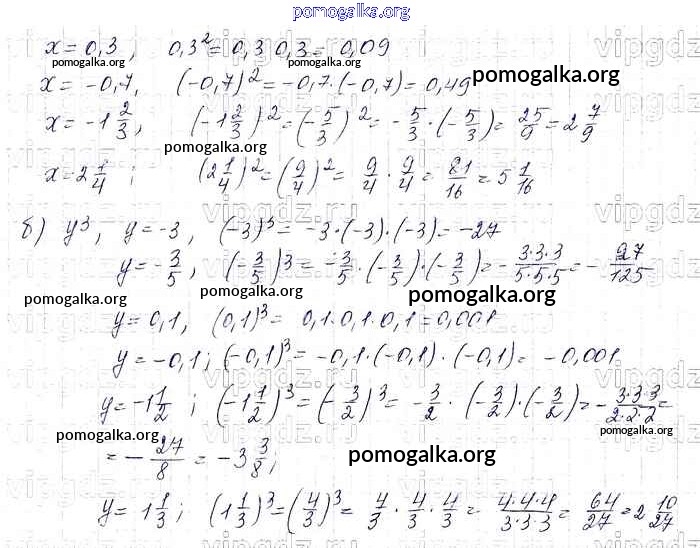 pomogalka.org
x = 0,3, 0,3² = 0,3·0,3 = 0,09
pomogalka.org pomogalka.org
x = -0,7, (-0,7)² = -0,7·(-0,7) = 0,49 pomogalka.org
x = -1 2/3, (-1 2/3)² = (-5/3)² = -5/3·(-5/3) = 25/9 = 2 7/9
pomogalka.org
x = 2 1/4; (2 1/4)² = (9/4)² = 9/4 · 9/4 = 81/16 = 5 1/16
б) y³, y = -3, (-3)³ = -3·(-3)·(-3) = -27
y = -3/5, (-3/5)³ = -3/5·(-3/5)·(-3/5) = -3·3·3/5·5·5 = -27/125
pomogalka.org pomogalka.org pomogalka.org
y = 0,1, (0,1)³ = 0,1·0,1·0,1 = 0,001
y = -0,1; (-0,1)³ = -0,1·(-0,1)·(-0,1) = -0,001
y = -1 1/2; (-1 1/2)³ = (-3/2)³ = -3/2·(-3/2)·(-3/2) = -3·3·3/2·2·2 =
pomogalka.org pomogalka.org
= -27/8 = -3 3/8; pomogalka.org
y = 1 1/3; (1 1/3)³ = (4/3)³ = 4/3 · 4/3 · 4/3 = 4·4·4/3·3·3 = 64/27 = 2 10/27